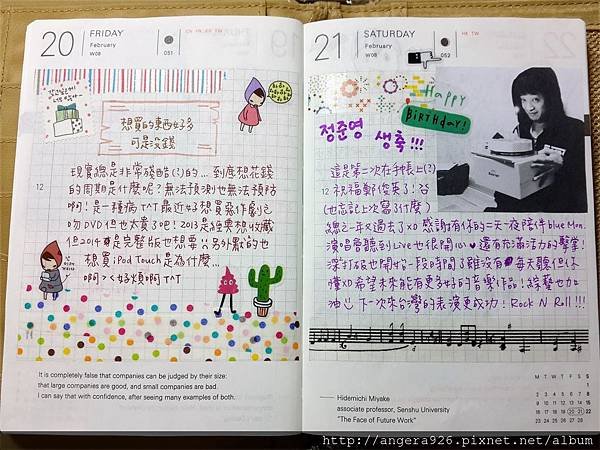 20
FRIDAY
February
W08
051
CN
想買的東西好多
可是沒錢
現實總是非常殘酷(?)的... 到底想花錢
的周期是完整呢?無法預測也無法預防
啊!是一種病TAT最近好想買惡作劇之
吻DVD但也太貴了吧!2013是經典想收藏
但2014是完整版也想要;;另外獸的也
想買iPod Touch是為什麼...
啊>"<好煩啊TAT
It is completely false that companies can be judged by their size:
that large companies are good, and small companies are bad.
I can say that with confidence, after seeing many examples of both.
21
SATURDAY
February
W08
052
HK TW
HAPPY
BiRTHDAY!
정준영
생축!!!
這是第二次在手帳上(?)
12 祝福鄭俊英!
(也忘記上次寫了什麼)
總之一年又過去了XD感謝有你的一天一夜陪伴blue Mon.
演唱會聽到Live也很開心 還有充滿活力的聲音!
深打版也開始一段時間了雖沒有每天聽但不
懂XD希望未來能有更多好的音樂作品!綜藝也加
油 下一次來台灣的表演更成功! Rock N Roll!!!
Hidemichi Miyake
associate professor, Senshu University
"The Face of Future Work"
M T W T F S S
1
2 3 4 5 6 7 8
9 10 11 12 13 14 15
16 17 18 19 20 21 22
23 24 25 26 27 28
http://angera926.pixnet.net/album